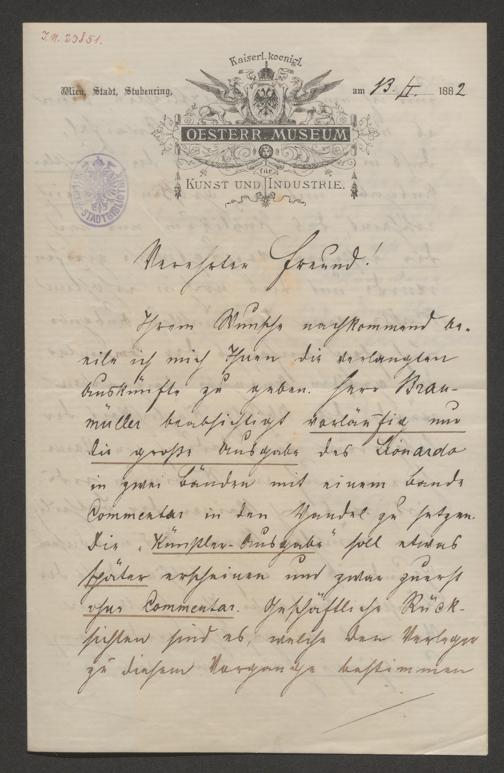 J.N. 23851.
Kaiserl. koenigl.
Wien, Stadt, Stubenring,
am 13. /II. 1882
OESTERR. MUSEUM
FÜR
KUNST UND INDUSTRIE.
STADTBIBLIOTHEK
Verehrter Freund!
Ihrem Wunsche nachkommend be-
eile ich mich Ihnen die verlangten
Auskünfte zu geben. Herr Brau-
müller beabsichtigt vorläufig nur
die große Ausgabe des Lionardo
in zwei Bänden mit einem Bande
Commentar in den Handel zu setzen.
Die „Künstler-Ausgabe" soll etwas
später erscheinen und zwar zuerst
ohne Commentar. Geschäftliche Rück-
sichten sind es, welche den Verleger
zu diesem Vorgange bestimmen